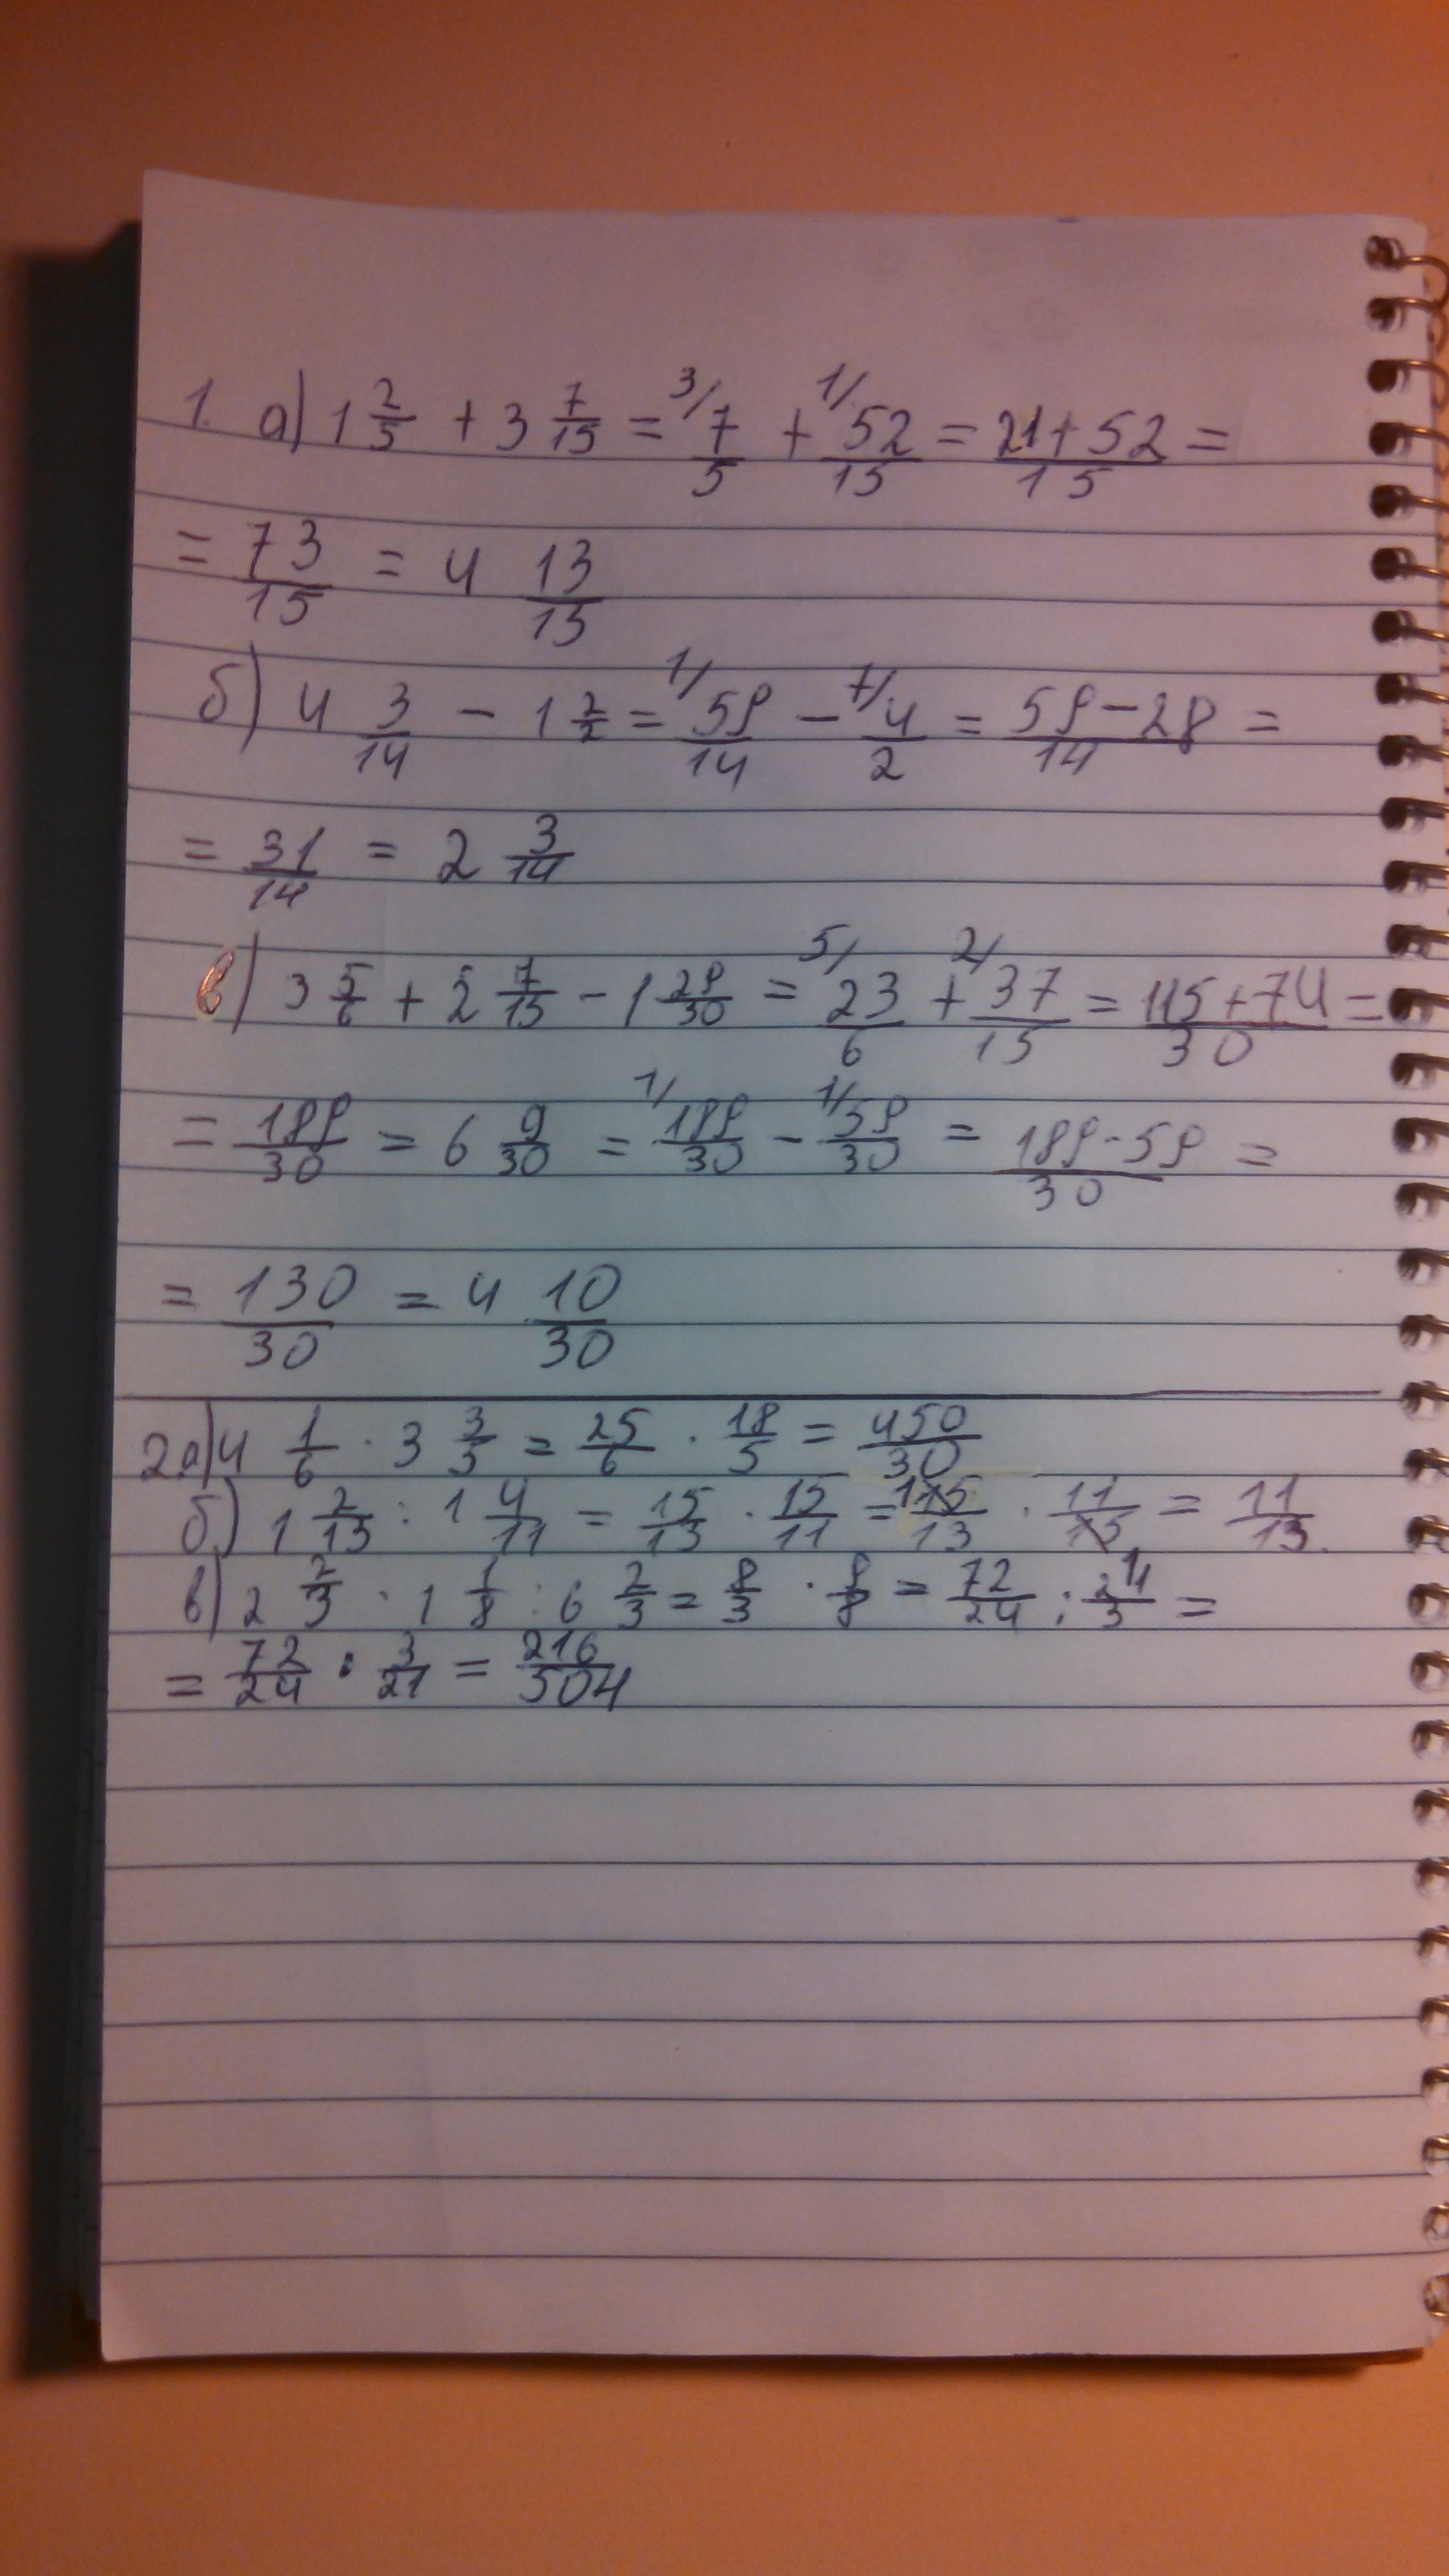 1. а) 1 2/5 + 3 7/15 = 3/ 7/5 + 1/ 52/15 = 21+52/15 =
= 73/15 = 4 13/15
б) 4 3/14 - 1 2/2 = 1/ 59/14 - 7/ 4/2 = 59-28/14 =
= 31/14 = 2 3/14
в) 3 5/6 + 2 7/15 - 1 29/30 = 5/ 23/6 + 2/ 37/15 = 115+74/30 =
= 189/30 = 6 9/30 = 1/ 189/30 - 1/ 59/30 = 189-59/30 =
= 130/30 = 4 10/30
2а) 4 1/6 · 3 3/5 = 25/6 · 18/5 = 450/30
б) 1 2/13 : 1 4/11 = 15/13 · 15/11 = 115/13 · 11/15 = 11/13
в) 2 2/3 · 1 1/8 : 6 2/3 = 8/3 · 9/8 = 72/24 : 21/3 =
= 72/24 · 3/21 = 216/504